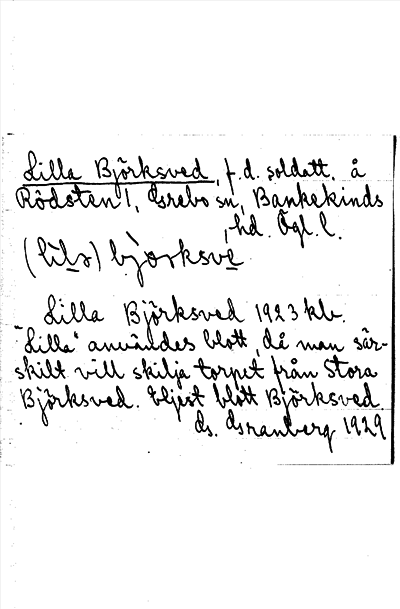 Lilla Björksved, f.d. soldatt. å
Rödsten 1, Grebo sn, Bankekinds
hd. Ögl. l.
(lìlə) bjö̀rksve
Lilla Björksved 1923 kb.
"Lilla" användes blott, då man sär-
skilt vill skilja torpet från Stora
Björksved. Eljest blott Björksved
G. Granberg 1929